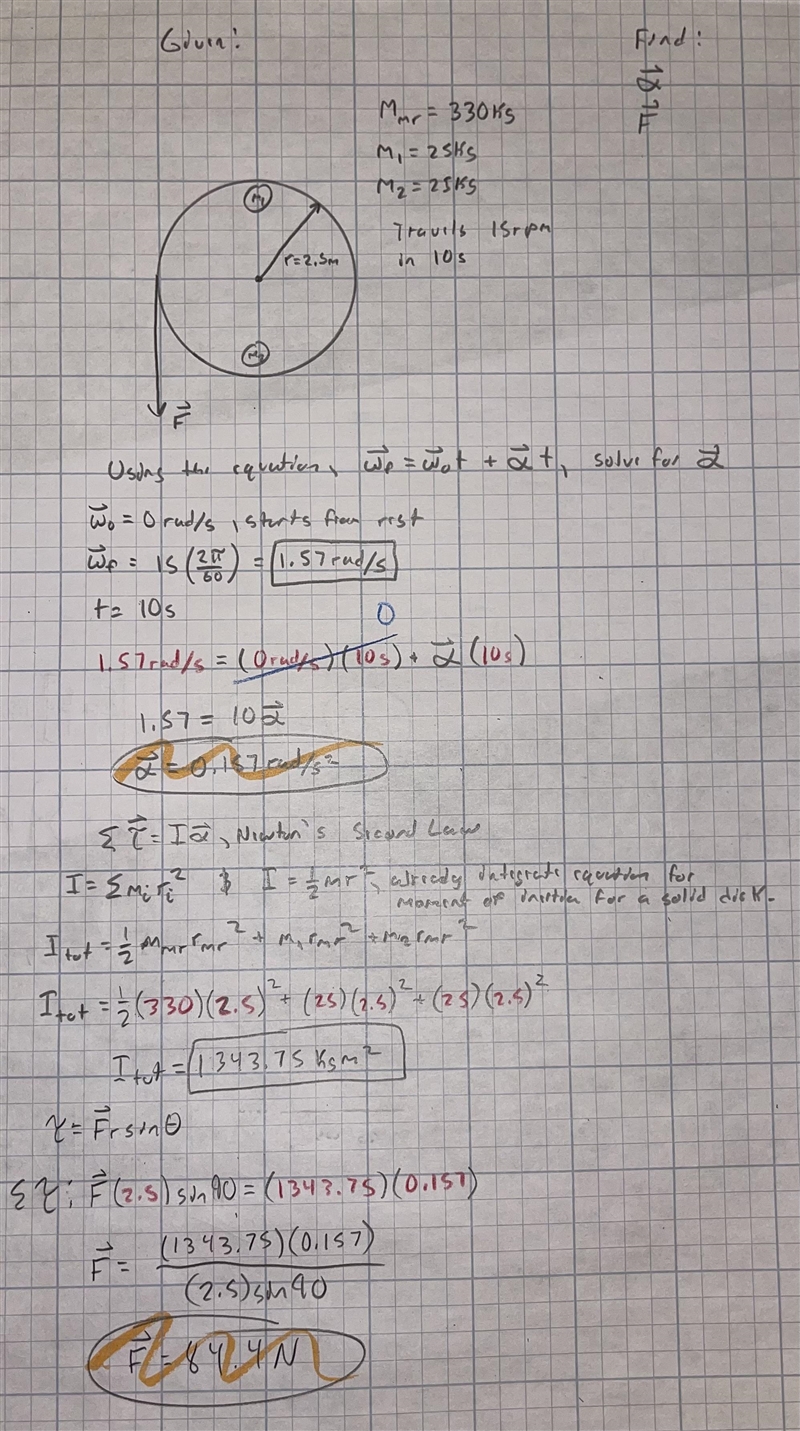 Given:
Find:
α⃗
F⃗
M_mr = 330Kg
M₁ = 25Kg
M₂ = 25Kg
Travels 15rpm
in 10s
M₁
r=2.5m
M₂
F⃗
Using the equation, ω⃗_f = ω⃗₀t + α⃗t, solve for α⃗
ω⃗₀ = 0 rad/s, starts from rest
ω⃗_f = 15(2π/60) = 1.57 rad/s
t = 10s
0
1.57rad/s = (0rad/s)(10s) + α⃗(10s)
1.57 = 10α⃗
α⃗ = 0.157 rad/s²
Σ τ⃗ = Iα⃗, Newton's Second Law
I = Σ mᵢ rᵢ² & I = ½mr², already integrate equation for
moment of inertia for a solid disk.
I_tot = ½ M_mr r_mr² + m₁ r_mr² + m₂ r_mr²
I_tot = ½(330)(2.5)² + (25)(2.5)² + (25)(2.5)²
I_tot = 1343.75 Kgm²
τ = F⃗r sinθ
Στ: F⃗(2.5) sin90 = (1343.75)(0.157)
F⃗ = (1343.75)(0.157) / (2.5)sin90
F⃗ = 84.4 N